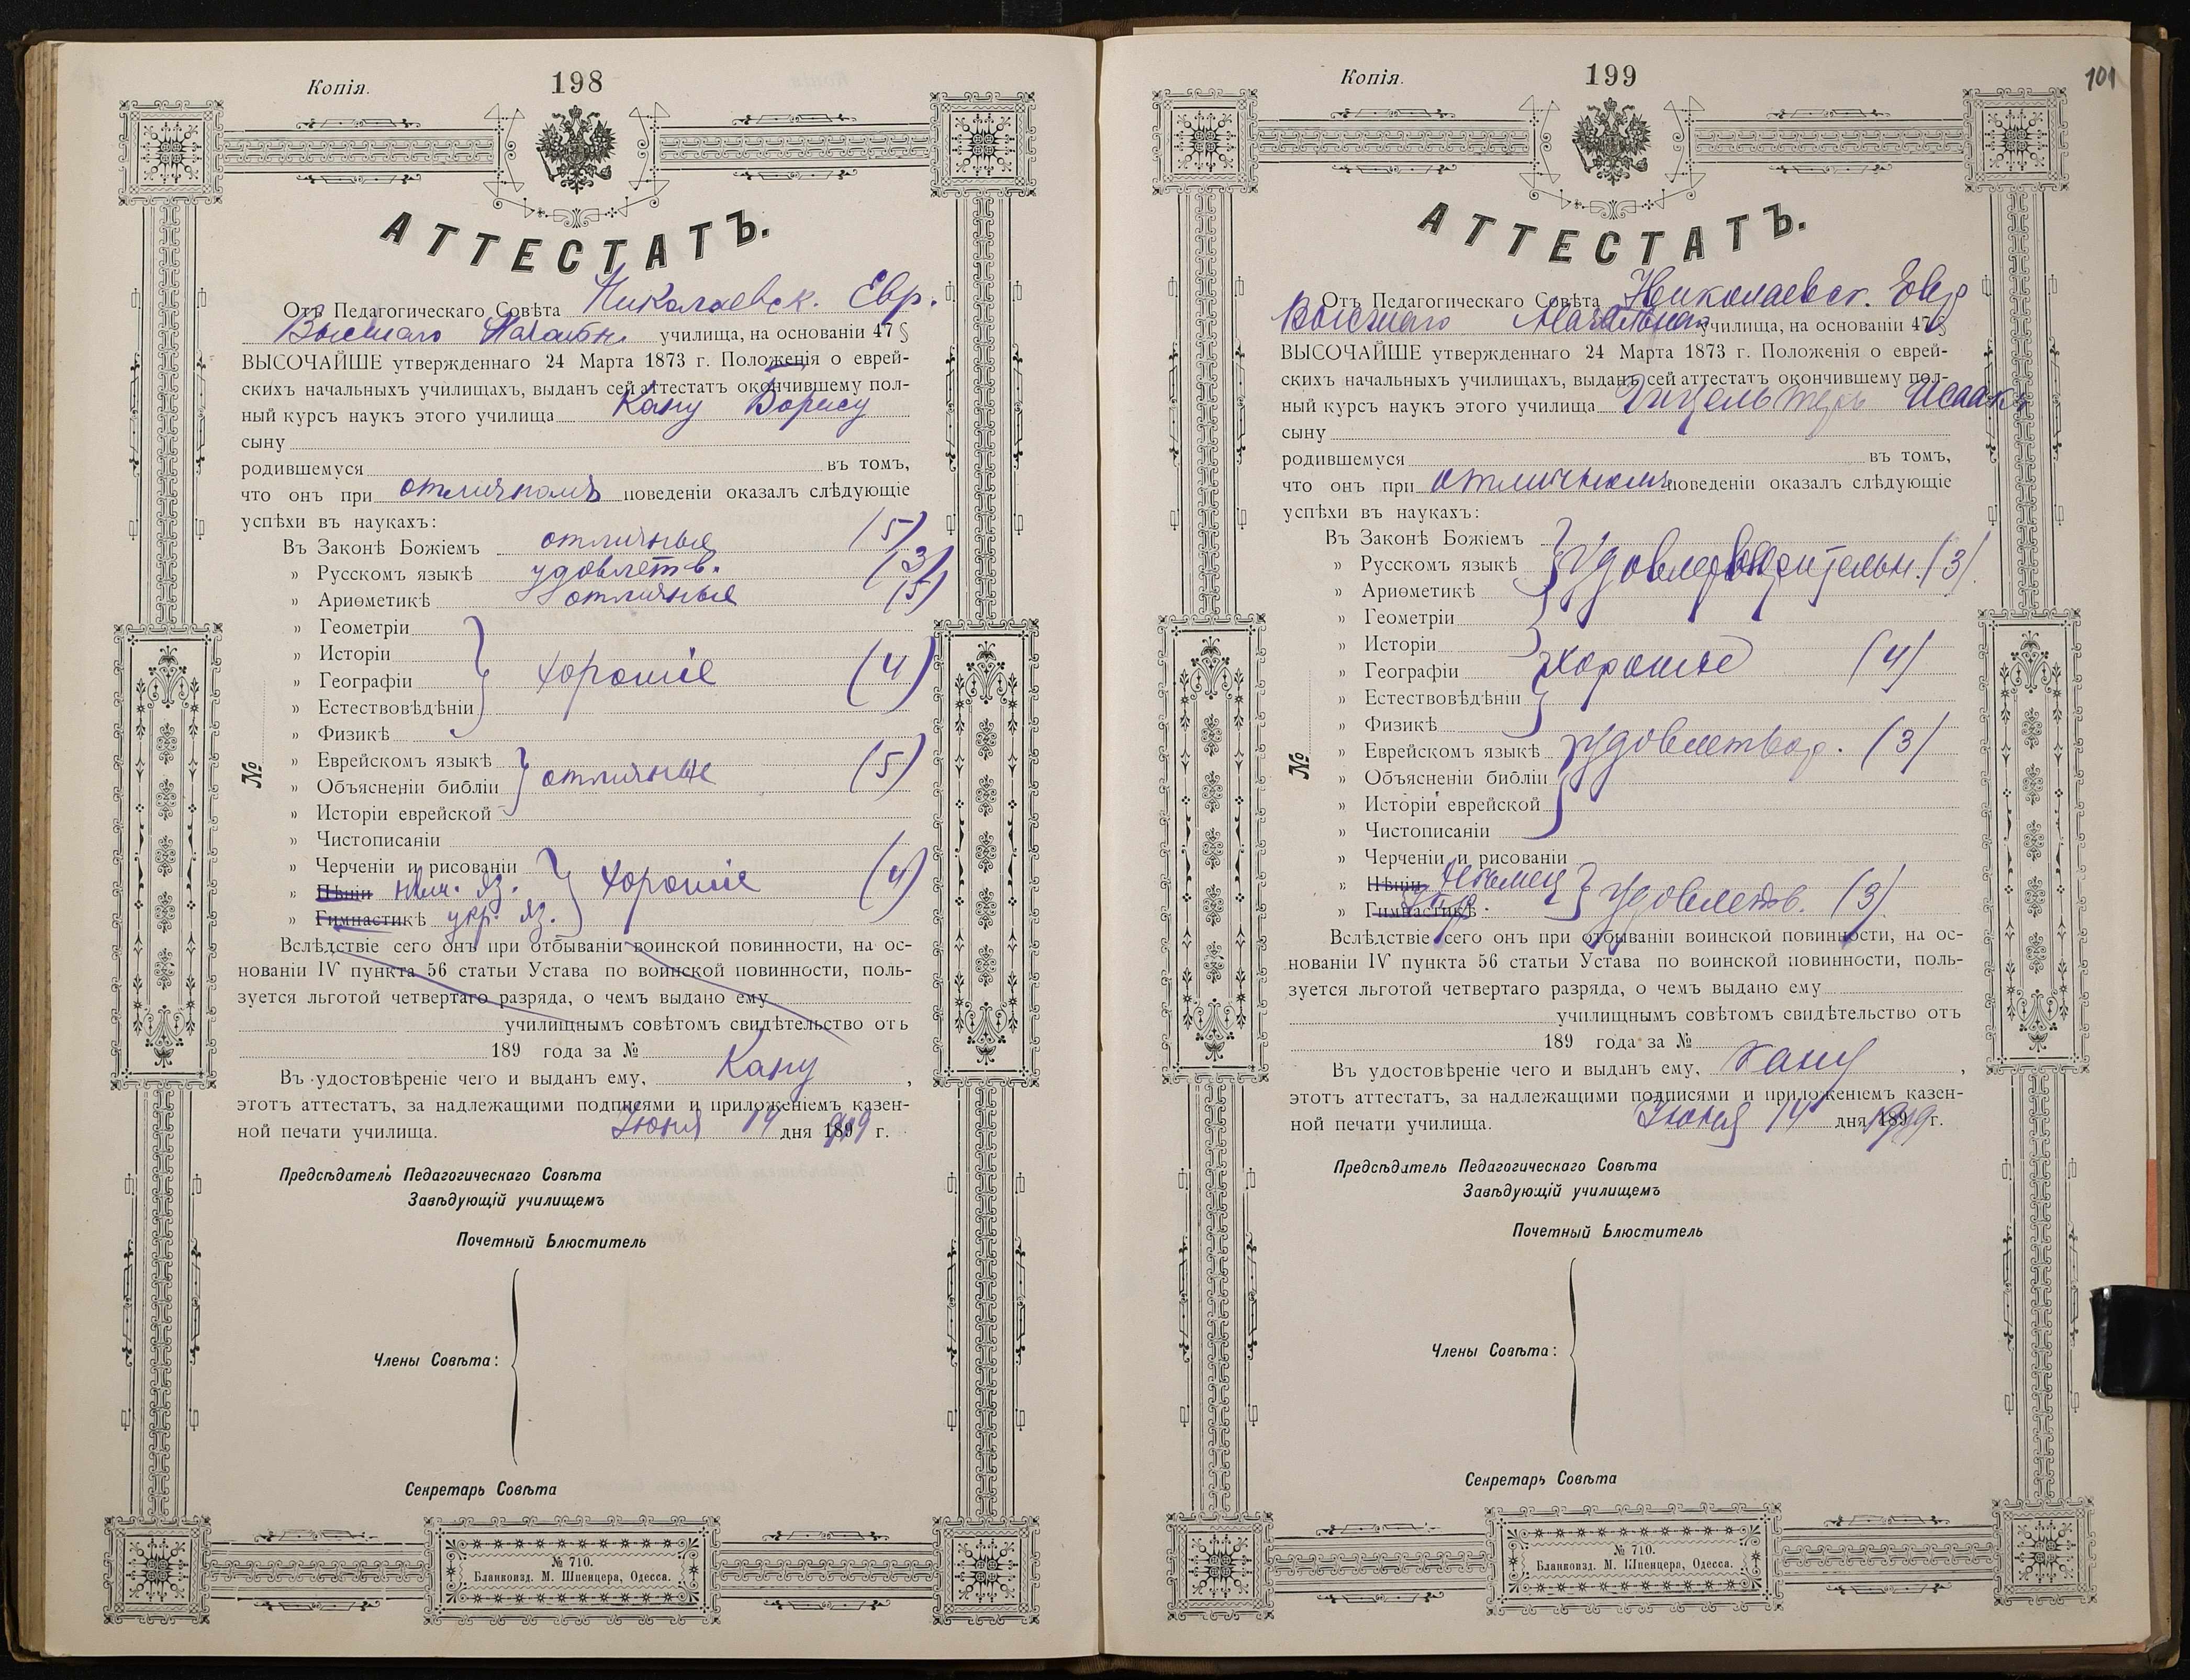 Копія.
198
АТТЕСТАТЪ.
Отъ Педагогическаго Совѣта Николаевск. Евр.
Высшаго Начальн. училища, на основаніи 47 §
ВЫСОЧАЙШЕ утвержденнаго 24 Марта 1873 г. Положенія о еврей-
скихъ начальныхъ училищахъ, выданъ сей аттестатъ окончившему пол-
ный курсъ наукъ этого училища Кану Борису
сыну
родившемуся въ томъ,
что онъ при отличномъ поведеніи оказалъ слѣдующіе
успѣхи въ наукахъ:
Въ Законѣ Божіемъ отличные (5)
» Русскомъ языкѣ удовлетв. (3)
» Ариѳметикѣ отличные (5)
» Геометріи
» Исторіи
» Географіи хорошіе (4)
» Естествовѣдѣніи
» Физикѣ
» Еврейскомъ языкѣ
» Объясненіи библіи отличные (5)
» Исторіи еврейской
» Чистописаніи
» Черченіи и рисованіи
» Пѣніи нѣм. яз. хорошіе (4)
» Гимнастикѣ укр. яз.
Вслѣдствіе сего онъ при отбываніи воинской повинности, на ос-
нованіи IV пункта 56 статьи Устава по воинской повинности, поль-
зуется льготой четвертаго разряда, о чемъ выдано ему
училищнымъ совѣтомъ свидѣтельство отъ
189 года за №
Въ удостовѣреніе чего и выданъ ему, Кану,
этотъ аттестатъ, за надлежащими подписями и приложеніемъ казен-
ной печати училища. Іюня 14 дня 1919 г.
Предсѣдатель Педагогическаго Совѣта
Завѣдующій училищемъ
Почетный Блюститель
Члены Совѣта:
Секретарь Совѣта
№ 710.
Бланкоизд. М. Шпенцера, Одесса.
№
Копія.
199
101
АТТЕСТАТЪ.
Отъ Педагогическаго Совѣта Николаевск. Евр
Высшаго Начальнаго училища, на основаніи 47 §
ВЫСОЧАЙШЕ утвержденнаго 24 Марта 1873 г. Положенія о еврей-
скихъ начальныхъ училищахъ, выданъ сей аттестатъ окончившему пол-
ный курсъ наукъ этого училища Исааку
сыну
родившемуся въ томъ,
что онъ при отличномъ поведеніи оказалъ слѣдующіе
успѣхи въ наукахъ:
Въ Законѣ Божіемъ
» Русскомъ языкѣ Удовлетворительн. (3)
» Ариѳметикѣ
» Геометріи
» Исторіи
» Географіи хорошіе (4)
» Естествовѣдѣніи
» Физикѣ
» Еврейскомъ языкѣ удовлетвор. (3)
» Объясненіи библіи
» Исторіи еврейской
» Чистописаніи
» Черченіи и рисованіи
» Пѣніи Нѣмец Удовлетв. (3)
» Гимнастикѣ Укр.
Вслѣдствіе сего онъ при отбываніи воинской повинности, на ос-
нованіи IV пункта 56 статьи Устава по воинской повинности, поль-
зуется льготой четвертаго разряда, о чемъ выдано ему
училищнымъ совѣтомъ свидѣтельство отъ
189 года за №
Въ удостовѣреніе чего и выданъ ему, Кану,
этотъ аттестатъ, за надлежащими подписями и приложеніемъ казен-
ной печати училища. Іюня 14 дня 1919 г.
Предсѣдатель Педагогическаго Совѣта
Завѣдующій училищемъ
Почетный Блюститель
Члены Совѣта:
Секретарь Совѣта
№ 710.
Бланкоизд. М. Шпенцера, Одесса.
№